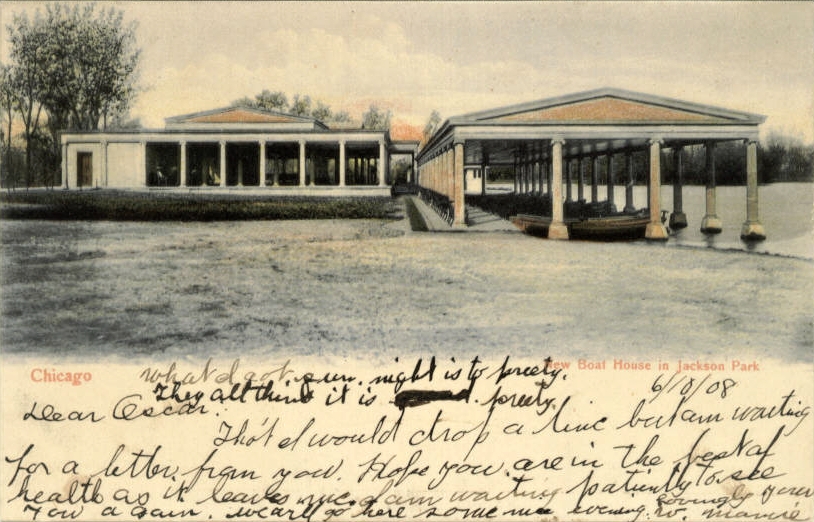 Chicago
New Boat House in Jackson Park
what I got. gun. night is to preety.
They all think it is preety.
6/18/08
Dear Oscar.
Tho't I would drop a line but am waiting
for a letter from you. Hope you are in the best of
health as it leaves me. I am waiting patiently to see
you again. we will go here some nice evening. Lovingly your
W. Mamie